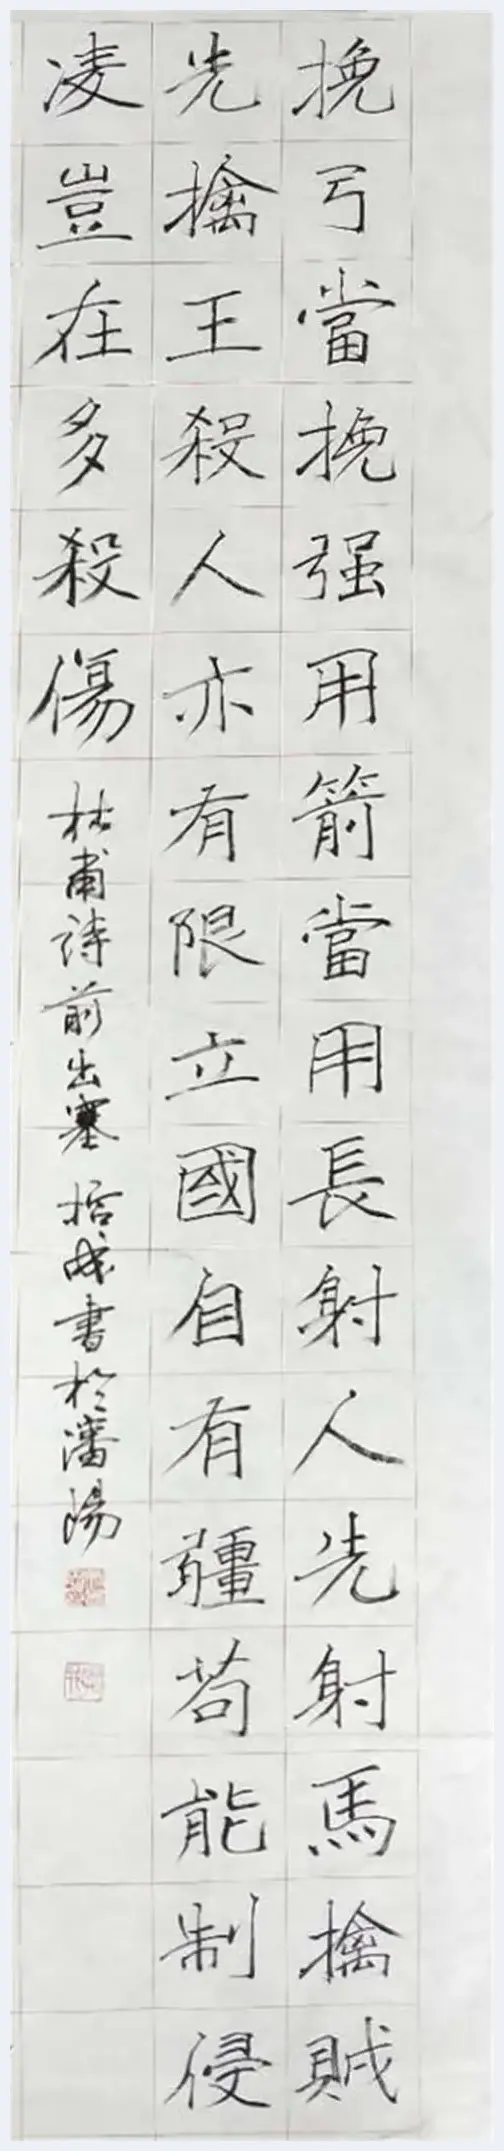 挽弓當挽强用箭當用長射人先射馬擒賊
先擒王殺人亦有限立國自有疆苟能制侵
凌豈在多殺傷
杜甫詩前出塞 成書於瀋陽